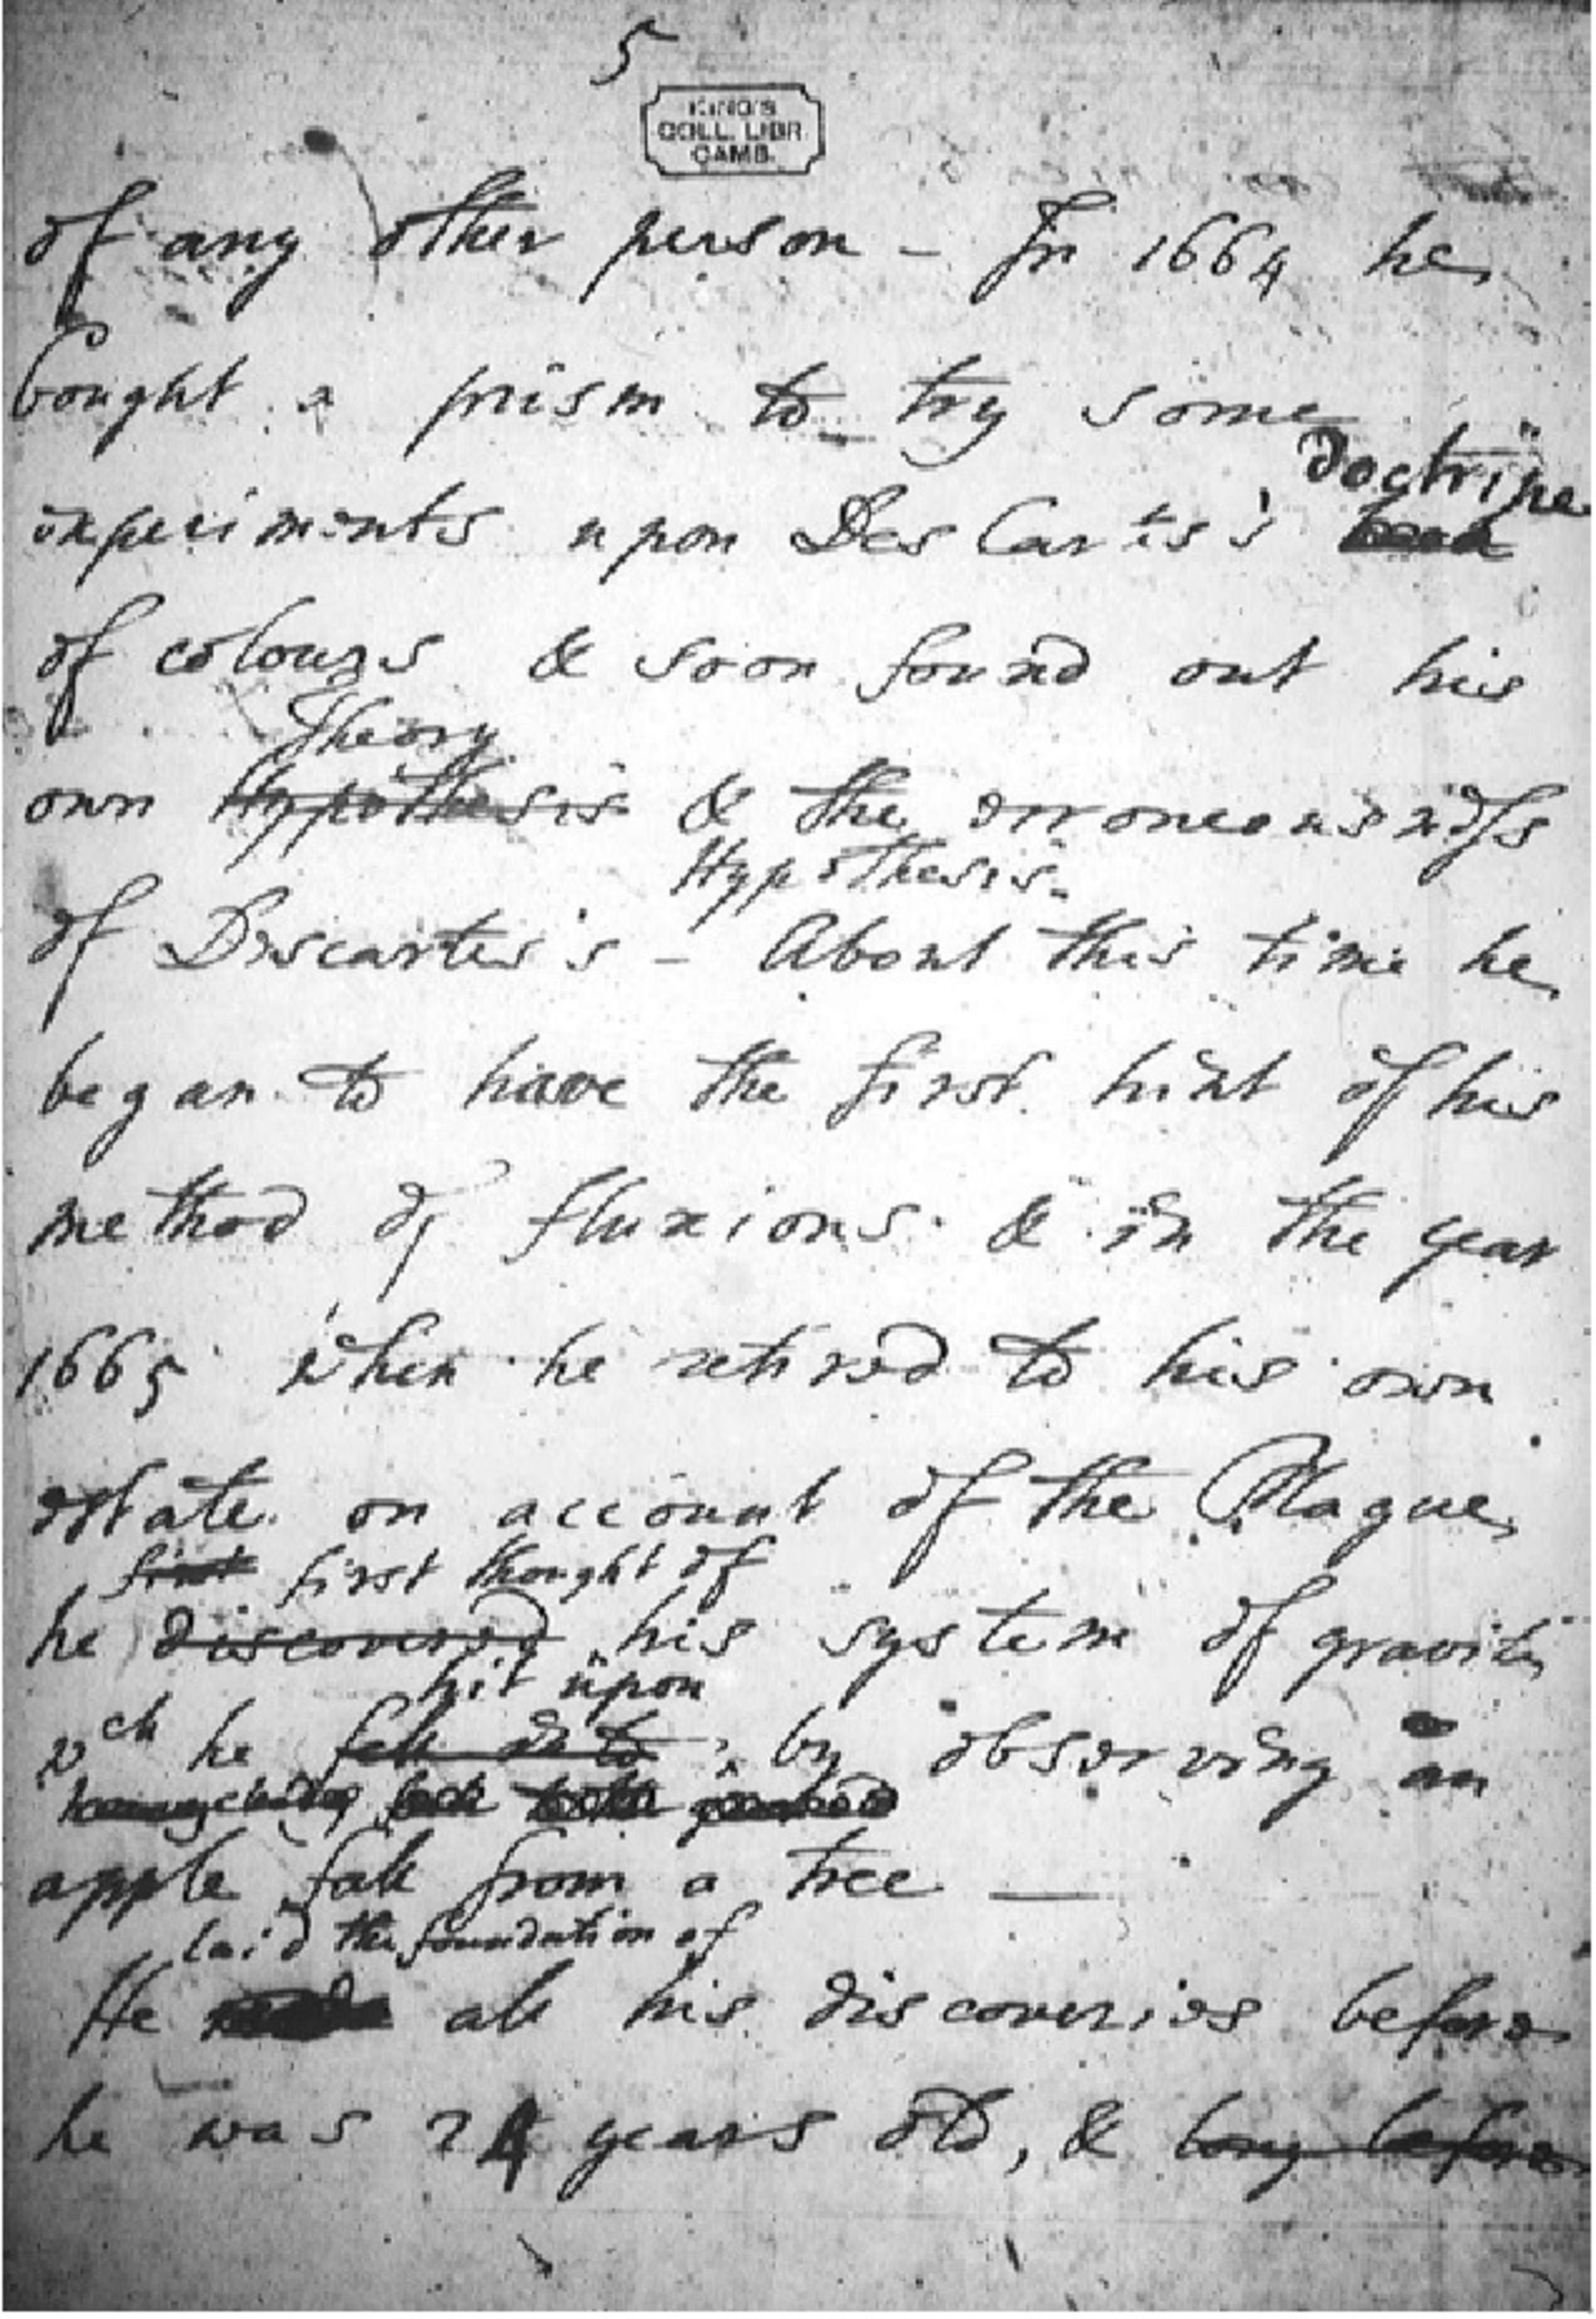 5
KING'S
COLL. LIBR
CAMB.
of any other person - In 1664 he
bought a prism to try some
doctrine
experiments upon Des Cartes's book
of colours & soon found out his
Theory
own Hypothesis & the erroneousness
Hypothesis.
of Descartes's - About this time he
began to have the first hint of his
method of fluxions & in the year
1665 when he retired to his own
estate on account of the Plague,
first first thought of
he discovered his system of gravity
hit upon
wch he fell into by observing an
apple fall from a tree —
laid the foundation of
He made all his discoveries before
he was 24 years old, & long before